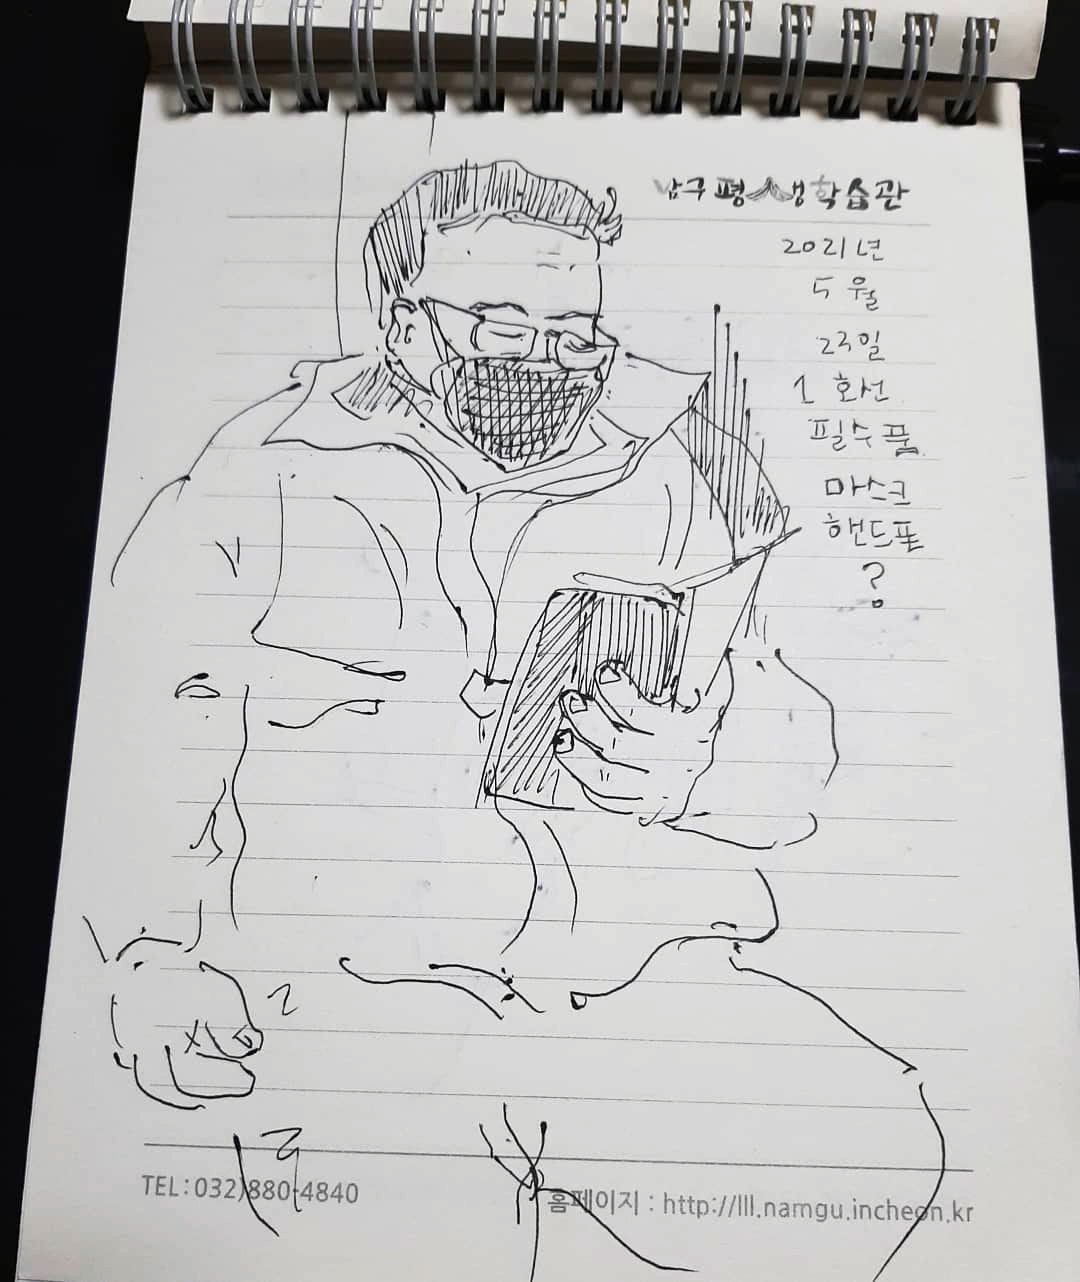 남구평생학습관
2021년
5월
23일
1호선
필수품
마스크
핸드폰
?
TEL:032)880-4840
홈페이지 : http://lll.namgu.incheon.kr